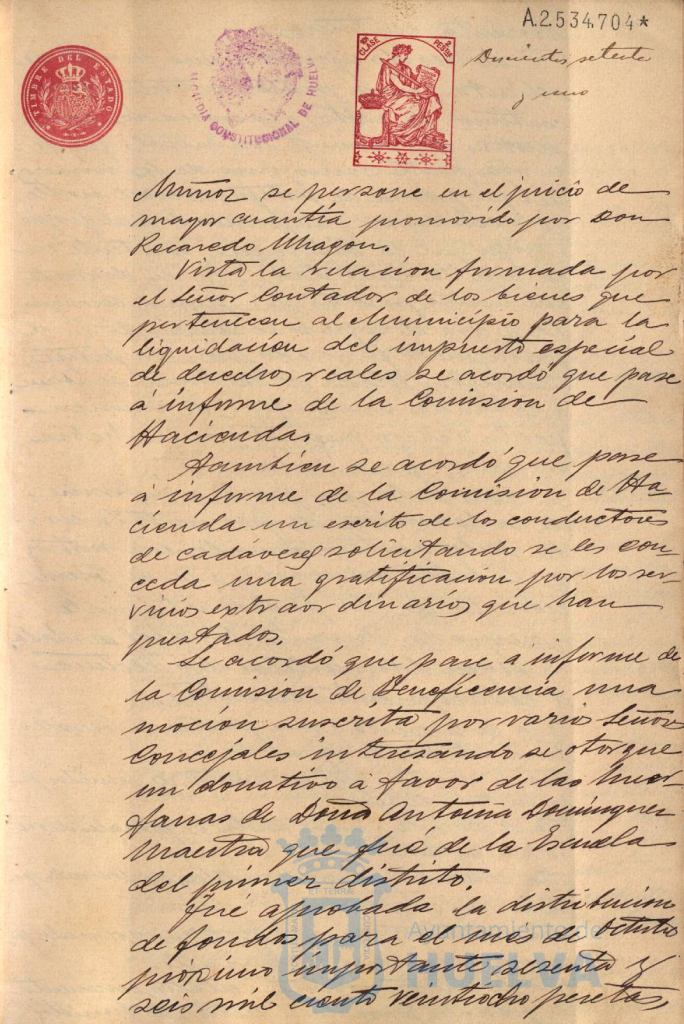 A.2.534.704*
TIMBRE DEL ESTADO
ALCALDIA CONSTITUCIONAL DE HUELVA
CLASE
PESETAS
Doscientos setenta
y uno
Muñoz se persone en el juicio de
mayor cuantía promovido por Don
Recaredo Uhagon.
Vista la relacion formada por
el Señor Contador de los bienes que
pertenecen al Municipio para la
liquidacion del impuesto especial
de derechos reales se acordó que pase
á informe de la Comision de
Hacienda.
Tambien se acordó que pase
á informe de la Comision de Ha-
cienda un escrito de los conductores
de cadáveres solicitando se les con-
ceda una gratificacion por los ser-
vicios extraordinarios que han
prestados.
Se acordó que pase a informe de
la Comision de Beneficencia una
mocion suscrita por varios Señores
Concejales interesando se otorgue
un donativo á favor de las huer-
fanas de Doña Antonia Dominguez
Maestra que fué de la Escuela
del primer distrito.
Fué aprobada la distribucion
de fondos para el mes de Octubre
próximo importante sesenta y
seis mil ciento veintiocho pesetas,
Ayuntamiento de
HUELVA